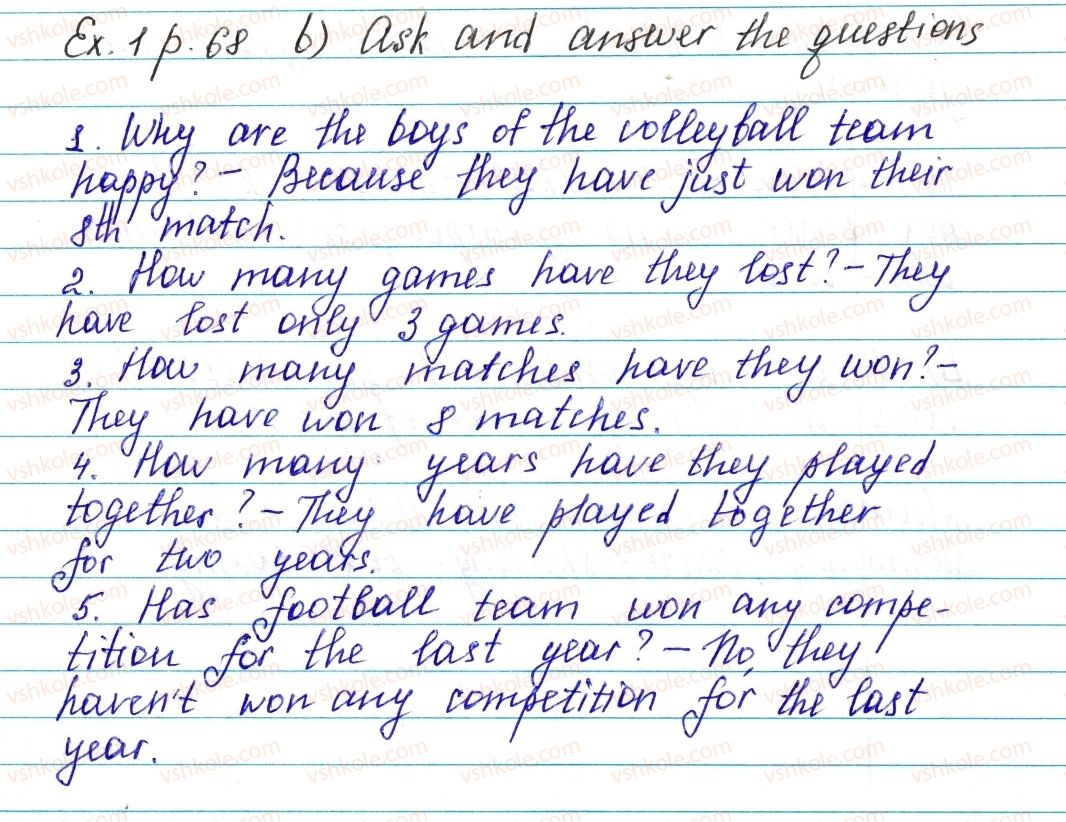 Ex. 1 p. 68 b) Ask and answer the questions
1. Why are the boys of the volleyball team
happy? – Because they have just won their
8th match.
2. How many games have they lost? – They
have lost only 3 games.
3. How many matches have they won? –
They have won 8 matches.
4. How many years have they played
together? – They have played together
for two years.
5. Has football team won any compe-
tition for the last year? – No, they
haven't won any competition for the last
year.